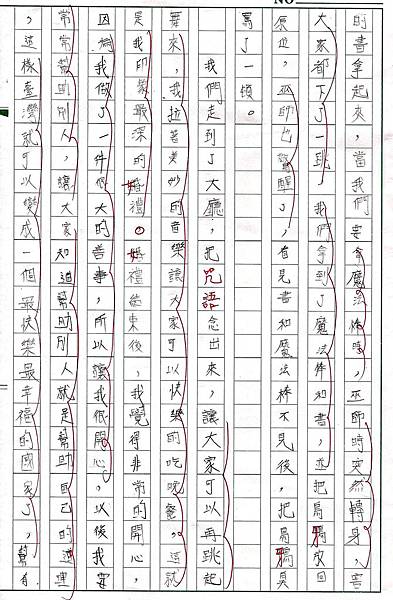 NO.
的書拿起來，當我們要拿魔法棒時，巫師時突然轉身，害
大家都下了一跳，我們拿到了魔法棒和書，並把烏鴉放回
原位，巫師也驚醒了，看見書和魔法棒不見後，把烏鴉臭
罵了一頓。
我們走到了大廳，把咒語念出來，讓大家可以再跳起
舞來，我拉著美妙的音樂讓大家可以快樂的吃晚餐，這就
是我印象最深的婚禮。婚禮結束後，我覺得非常的開心，
因為我做了一件很大的善事，所以讓我很開心，以後我要
常常幫助別人，讓大家知道幫助別人就是幫助自己的道理
，這樣臺灣就可以變成一個最快樂最幸福的國家了，幫